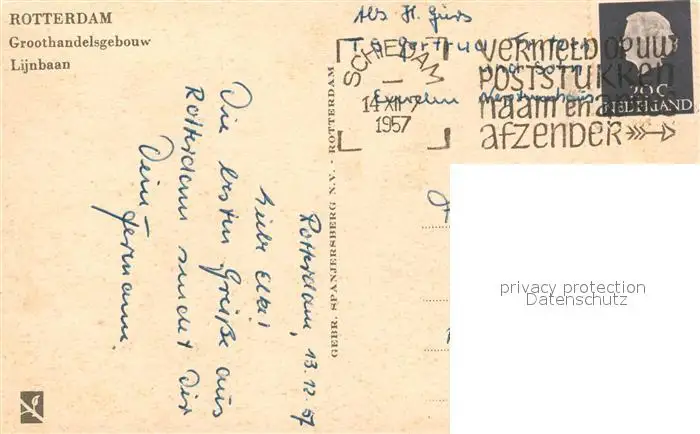 ROTTERDAM
Groothandelsgebouw
Lijnbaan
Als H. Gius
SCHIEDAM
14 XII 7
1957
VERMELD OP UW
POSTSTUKKEN
NAAM EN ADRES
AFZENDER
20 C
NEDERLAND
GEBR. SPANJERSBERG N.V. - ROTTERDAM
Rotterdam, 13.12.57
Liebe Elke!
Die besten Grüße aus
Rotterdam sendet Dir
Dein Hermann.
privacy protection
Datenschutz